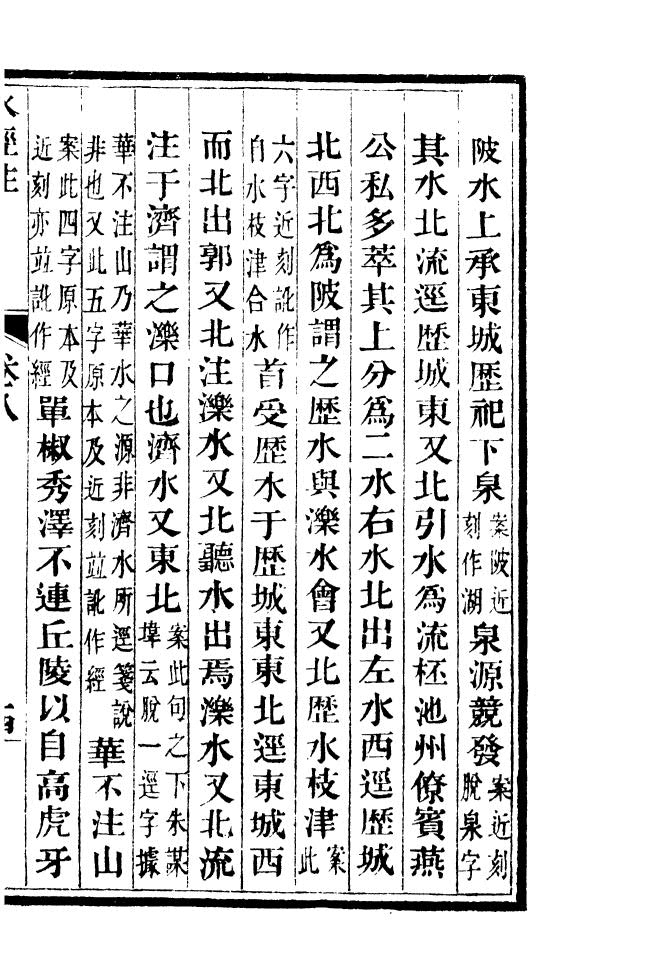 陂水上承東城歷祀下泉案陂近刻作湖泉源競發案近刻脫泉字
其水北流逕歷城東又北引水爲流杯池州僚賓燕
公私多萃其上分爲二水右水北出左水西逕歷城
北西北爲陂謂之歷水與濼水會又北歷水枝津案此
六字近刻訛作自水枝津合水首受歷水于歷城東東北逕東城西
而北出郭又北注濼水又北聽水出焉濼水又北流
注于濟謂之濼口也濟水又東北案此句之下朱謀㙔云脫一逕字據
華不注山乃華水之源非濟水所逕箋說非也又此五字原本及近刻竝訛作經華不注山
案此四字原本及近刻亦竝訛作經單椒秀澤不連丘陵以自高虎牙
水經注 卷八